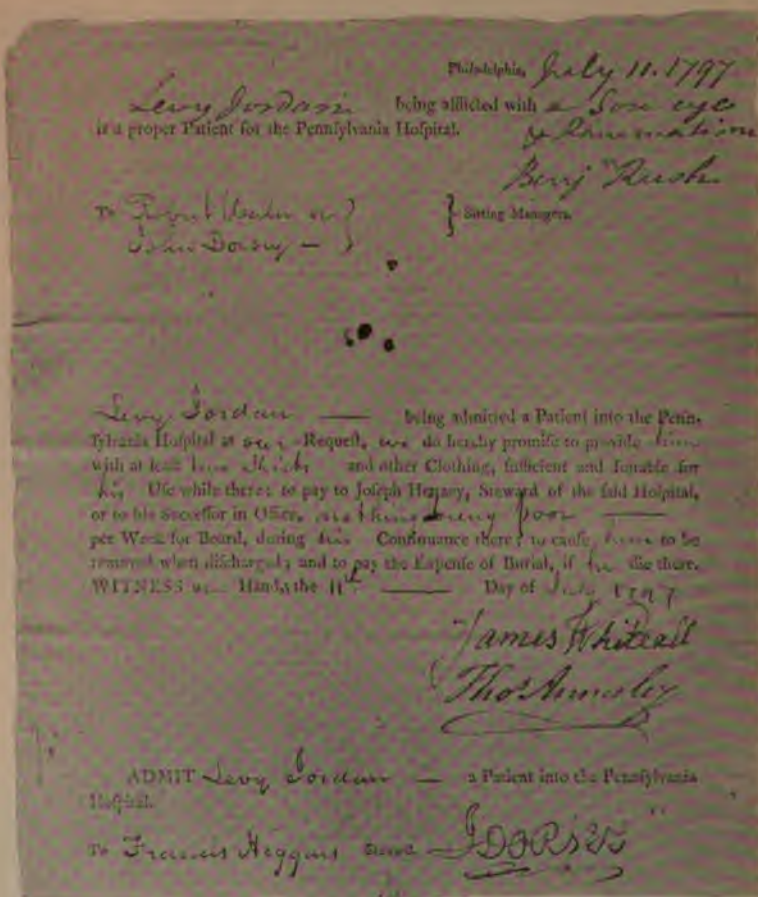 Philadelphia, July 11. 1797
Levy Jordan being afflicted with a Sore eye
is a proper Patient for the Pennſylvania Hoſpital. & Rheumatism
Benjn Rush
To Robert or }
John Dorsey — } } Sitting Managers.
Levy Jordan —— being admitted a Patient into the Penn-
ſylvania Hoſpital at our Requeſt, we do hereby promiſe to provide him
with at leaſt two Shirts and other Clothing, ſufficient and ſuitable for
his Uſe while there; to pay to Joſeph Henzey, Steward of the ſaid Hoſpital,
or to his Succeſſor in Office, nothing being poor ——
per Week for Board, during his Continuance there; to cauſe him to be
removed when diſcharged; and to pay the Expenſe of Burial, if he die there.
WITNESS our Hands, the 11th —— Day of July 1797
James Whiteall
Thos Annesley
ADMIT Levy Jordan — a Patient into the Pennſylvania
Hoſpital.
To Francis Higgins J DORSEY